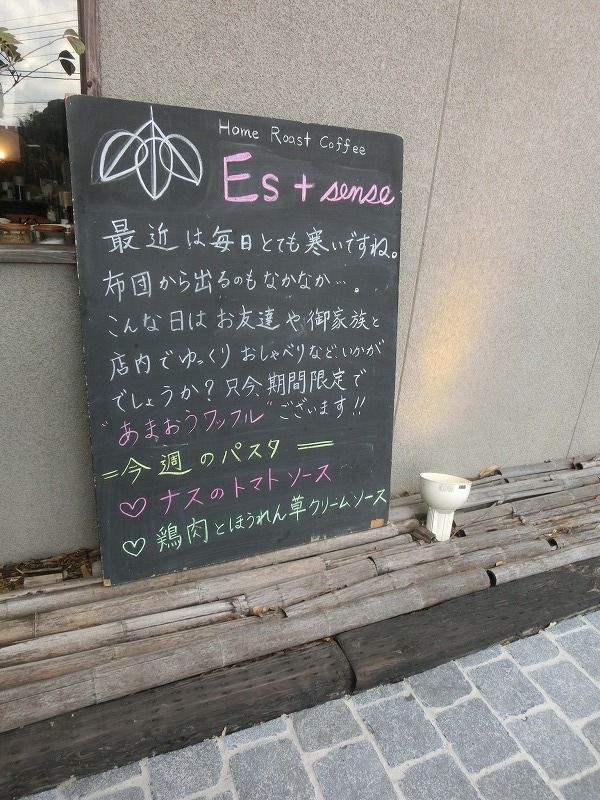 Home Roast Coffee
Es + sense
最近は毎日とても寒いですね。
布団から出るのもなかなか…。
こんな日はお友達や御家族と
店内でゆっくりおしゃべりなど、いかが
でしょうか？只今、期間限定で
"あまおうワッフル"ございます!!
=今週のパスタ=
♡ナスのトマトソース
♡鶏肉とほうれん草クリームソース